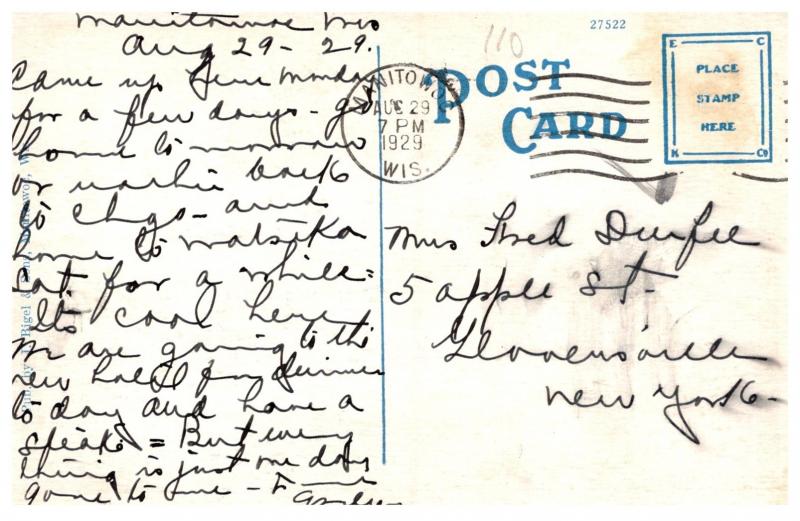 Manitowoc Wis
Aug 29 - 29.
Came up here Monday
for a few days - go
home to morrow
or rather back
to Chgo - and
home to Watseka
Sat. for a while =
Its cool here
We are going to the
new hotel for dinner
to day and have a
steak = But every
thing is just one day
gone to me -
27522
110
POST
CARD
E C
PLACE
STAMP
HERE
K Co
MANITOWOC
AUG 29
7 PM
1929
WIS.
Mrs Fred Durfee
5 Apple St.
Gloversville
New York -
Pub. by J. Bigel &